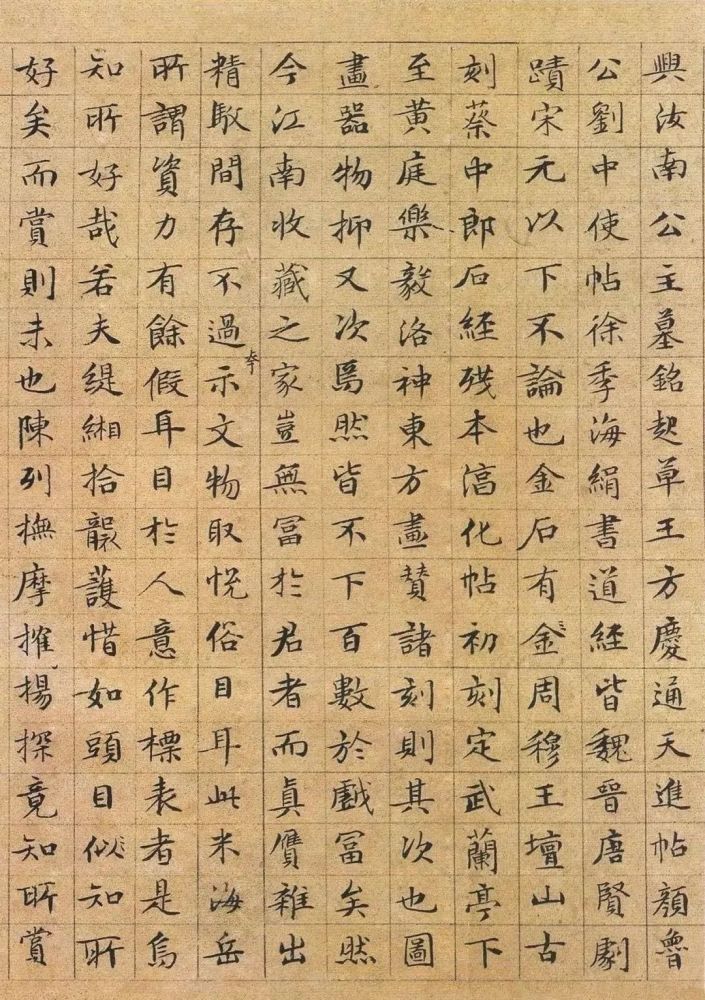 興汝南公主墓銘起草王方慶通天進帖顏魯
公劉中使帖徐季海絹書道經皆魏晉唐賢劇
蹟宋元以下不論也金石有金周穆王壇山古
刻蔡中郎石經殘本淳化帖初刻定武蘭亭下
至黃庭樂毅洛神東方畫贊諸刻則其次也圖
畫器物抑又次焉然皆不下百數於戲富矣然
今江南收藏之家豈無富於君者而真贗雜出
精駁間存不過夸示文物取悅俗目耳此米海岳
所謂資力有餘假耳目於人意作標表者是烏
知所好哉若夫緹緗拾襲護惜如頭目似知所
好矣而賞則未也陳列撫摩搉揚探竟知所賞